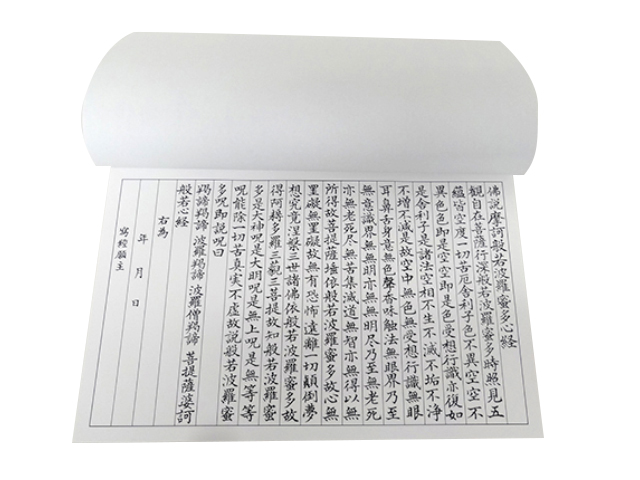 佛說摩訶般若波羅蜜多心経
觀自在菩薩行深般若波羅蜜多時照見五
蘊皆空度一切苦厄舍利子色不異空空不
異色色即是空空即是色受想行識亦復如
是舍利子是諸法空相不生不滅不垢不浄
不増不減是故空中無色無受想行識無眼
耳鼻舌身意無色聲香味触法無眼界乃至
無意識界無無明亦無無明尽乃至無老死
亦無老死尽無苦集滅道無智亦無得以無
所得故菩提薩埵依般若波羅蜜多故心無
罣礙無罣礙故無有恐怖遠離一切顛倒夢
想究竟涅槃三世諸佛依般若波羅蜜多故
得阿耨多羅三藐三菩提故知般若波羅蜜
多是大神呪是大明呪是無上呪是無等等
呪能除一切苦真実不虚故說般若波羅蜜
多呪即說呪曰
羯諦羯諦 波羅羯諦 波羅僧羯諦 菩提薩婆訶
般若心経
右為
年 月 日
寫経願主